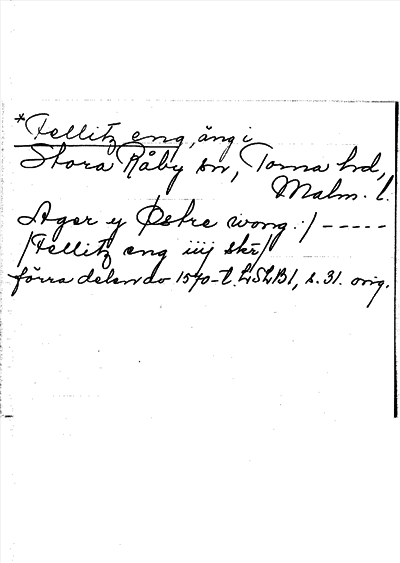 *Fellitz eng, äng i
Stora Råby sn, Torna hd,
Malm. l.
Ager y Østre wong :/ -----
/Fellitz eng iiij skr/
förra delen av 1570-t. LSLB1, s. 31. orig.